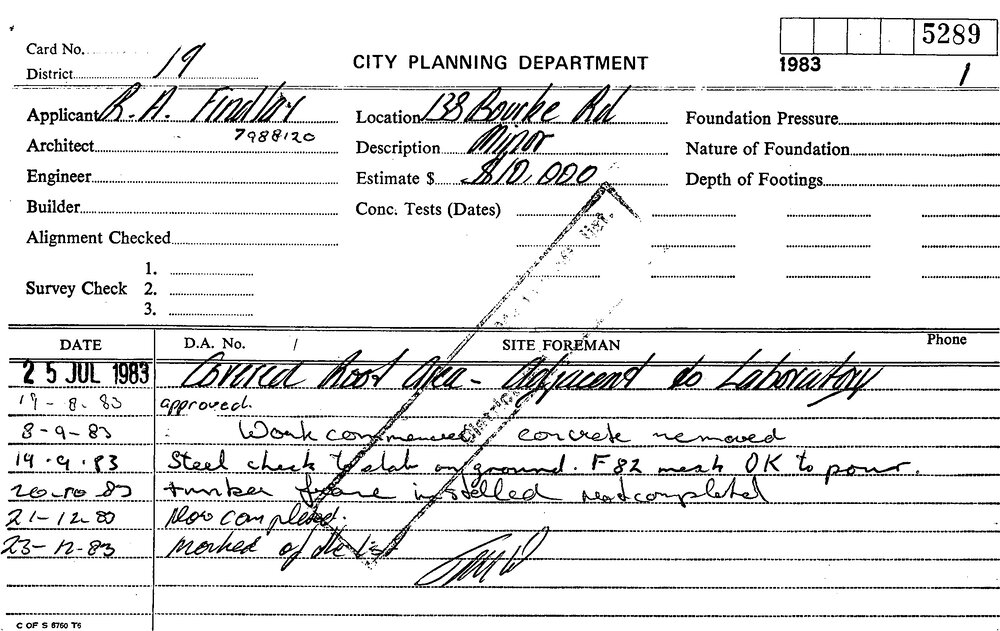 5289
1983
1
Card No.
District 19
CITY PLANNING DEPARTMENT
Applicant R. A. Findlay
7988120
Architect
Engineer
Builder
Alignment Checked
Survey Check
1.
2.
3.
Location 138 Bourke Rd
Description Minor
Estimate $ $10,000
Conc. Tests (Dates)
Foundation Pressure
Nature of Foundation
Depth of Footings
DATE D.A. No. / SITE FOREMAN Phone
25 JUL 1983 Covered Roof Area - Adjacent to Laboratory
19-8-83 approved.
8-9-83 Work commenced concrete removed
19.9.83 Steel check to slab on ground. F82 mesh OK to pour.
20-10-83 timber frame installed not completed
21-12-83 Now completed.
23-12-83 marked of the list
C OF S 6760 T6